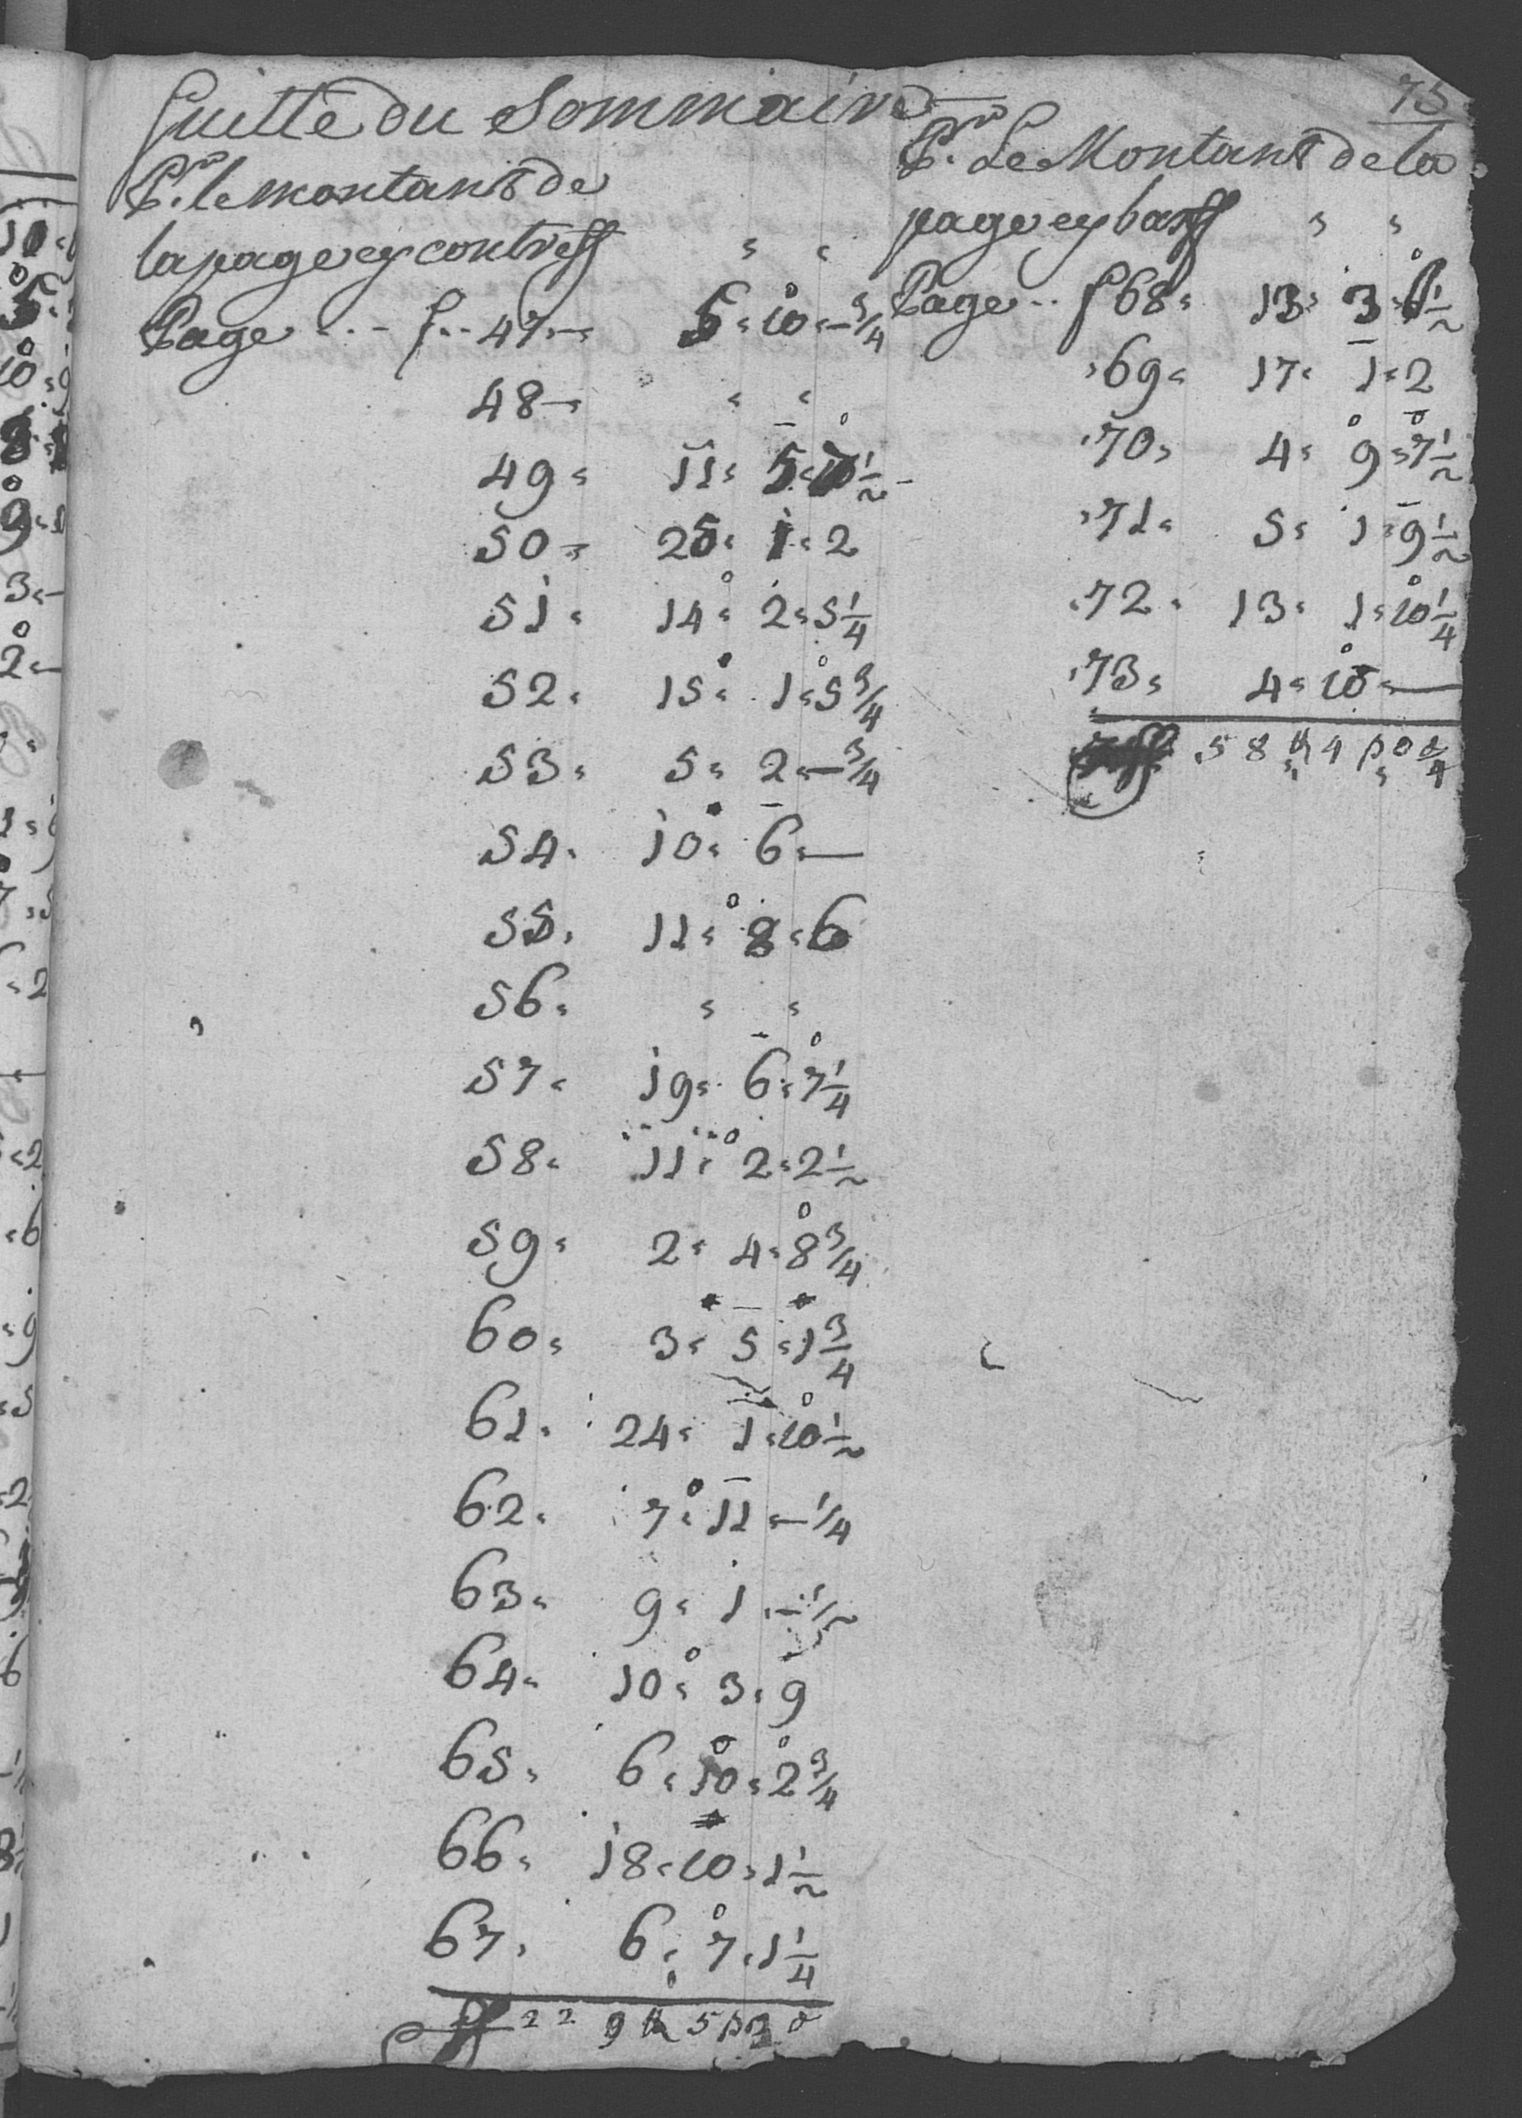 75
Suitte du Sommaire
Pr. le montant de
la page cy contre
Page f. 47 5 10 - 3/4
48 " "
49 11 5 10 1/2
50 25 1 2
51 14 2 5 1/4
52 15 1 5 3/4
53 5 2 - 3/4
54 10 6 -
55 11 8 6
56 " "
57 19 6 7 1/4
58 11 2 2 1/2
59 2 4 8 3/4
60 3 5 1 3/4
61 24 1 10 1/2
62 7 11 - 1/4
63 9 1 - 1/2
64 10 3 9
65 6 10 2 3/4
66 18 10 1 1/2
67 6 7 1 1/4
22 9 5
Pr. Le Montant de la
page cy bas " "
Page f 68 13 3 1/2
69 17 1 2
70 4 9 7 1/2
71 5 1 9 1/2
72 13 1 10 1/4
73 4 10 -
58 4